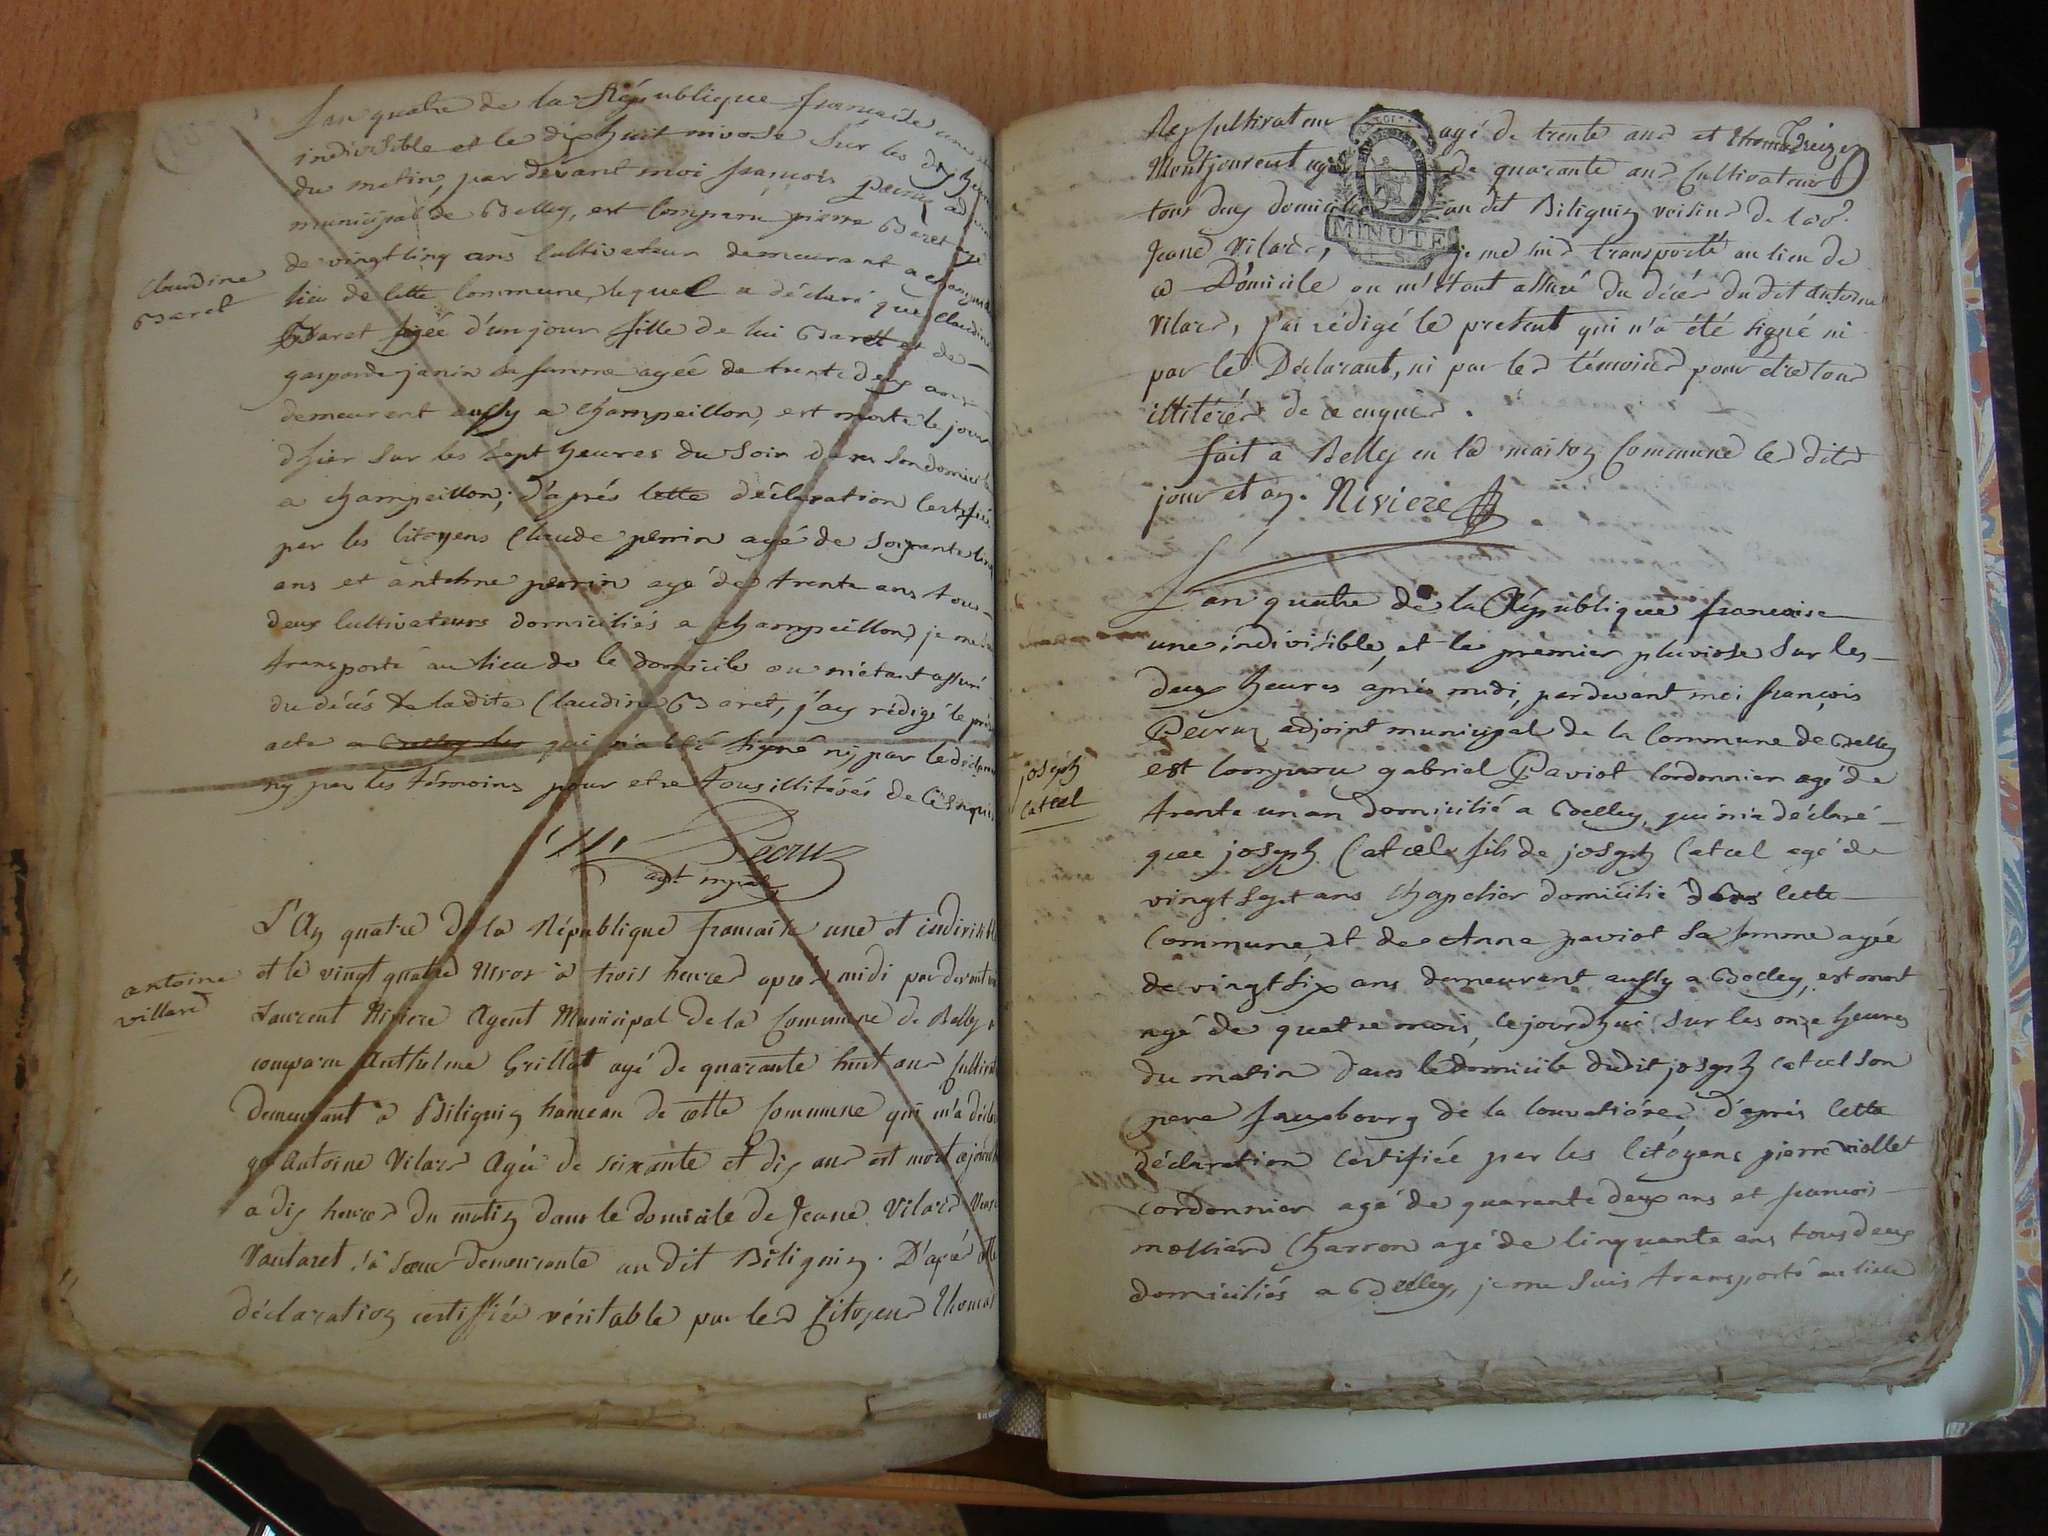 L'an quatre de la République francaise une
indivisible et le dix huit nivose Sur les dix heures
du matin, par devant moi francois Pecruz
municipal de Belley, est Comparu pierre Baret agé
de vingt cinq ans Cultivateur demeurant a
lieu de Cette Commune, lequel a déclaré que Claudine
Claudine
Baret
Baret agée d'un jour fille de lui Baret et de
gasparde janin sa femme agée de trente deux ans
demeurent aussy a Champeillon, est morte le jour
dhier Sur les Sept heures du Soir dans Son domicile
a Champeillon; d'aprés Cette déclaration Certifiée
par les Citoyens Claude perrin agé de Soixante
ans et antelme perrin agé de trente ans tous
deux Cultivateurs domiciliés a Champeillon, je me
transporté au lieu de Ce domicile ou m'étant assuré
du décés de la dite Claudine Baret, j'ay rédigé le
acte a Belley les qui n'a été Signé ny par le déclarant
ny par les témoins pour etre tous illitérés de Ce enquis
Pecruz
agt mpal
L'An quatre de la République francaise une et indivisible
antoine
villard
et le vingt quatre Nivos à trois heures apres midi par devant
Laurent Riviere Agent Municipal de la Commune de Belley
comparu Anthelme Grillot agé de quarante huit ans Cultivat
Demeurant à Biliguin hameau de cette Commune qui m'a décla
qe Antoine Vilard Agée de soixante et dix ans est mort
a dix heures du matin dans le domicile de Jeane Vilard
Vautaret sa Sœur Demeurante au dit Biliguin. D'apré cette
déclaration certiffiée véritable par les Citoyens Thomas
Rey Cultivateur agé de trente ans et Thomas
Montjouvent agé de quarante ans Cultivateur
tous deux domiciliés au dit Biliguin voisins de lad.
Jeane Vilard, je me suis transporté au lieu de
MINUTE
ce Domicile ou m'étant assuré du décé du dit Antoine
Vilard, j'ai rédigé le présent qui n'a été signé ni
par le Déclarant, ni par les témoins pour etre tous
illitérés de ce enquis.
fait a Belley en la maison Commune les dits
jour et an. Riviere
L'an quatre de la République francaise
une indivisible, et le prémier pluviose Sur les
deux heures aprés midi, pardevant moi francois
Pecruz adjoint municipal de la Commune de Belley
est Comparu gabriel Paviot Cordonnier agé de
joseph
Catcel
trente un an domicilié a Belley, qui m'a déclaré
que joseph Catcel fils de joseph Catcel agé de
vingt Sept ans Chapelier domicilié dans Cette
Commune, et de Anne paviot Sa femme agée
de vingt Six ans demeurent aussy a Belley, est mort
agé de quatre mois, Cejourdhui Sur les onze heures
du matin dans le domicile dudit joseph Catcel Son
pere fauxbourg de la Louvatiére, d'aprés Cette
déclaration Certifiée par les Citoyens pierre viollet
Cordonnier agé de quarante deux ans et francois
molliard Charron agé de Cinquante ans tous deux
domiciliés a Belley, je me Suis transporté au lieu